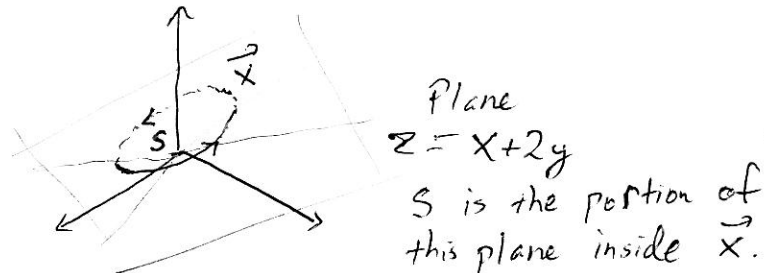 X⃗
S
Plane
z = x+2y
S is the portion of
this plane inside X⃗.